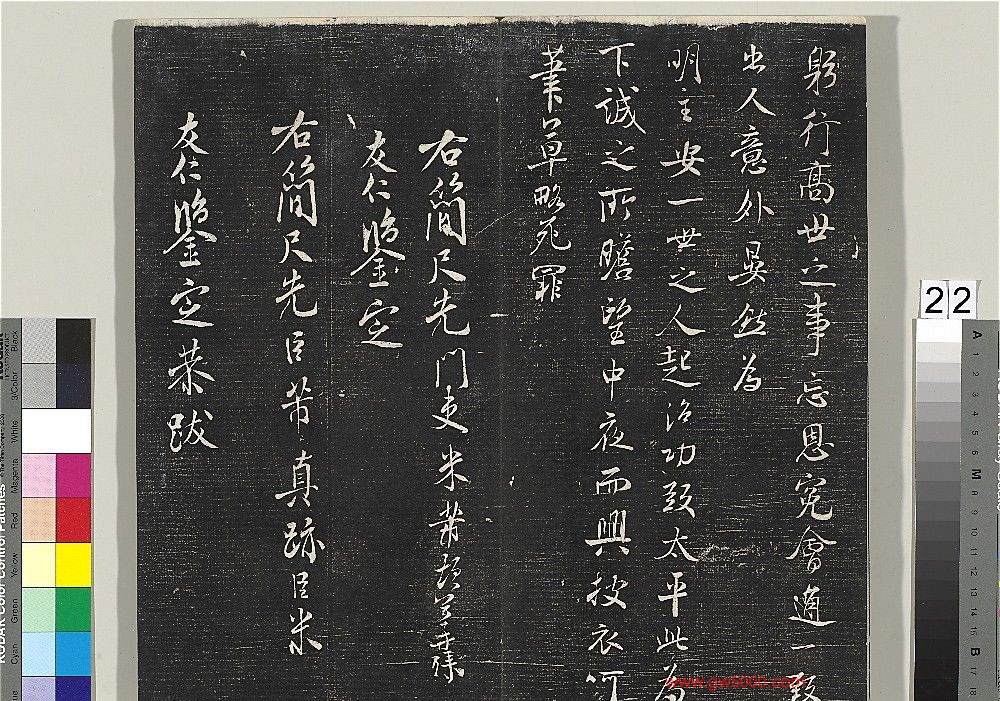 躬行高世之事忘恩冤會適一致
出人意外晏然為
明主安一世之人起治功致太平此為
下誠之所瞻望中夜而興披衣呵
筆草略死罪
右簡尺先門吏米黻頓首
友仁鑒定
右簡尺先臣芾真跡臣米
友仁鑒定恭跋
22
www.gw5000.com